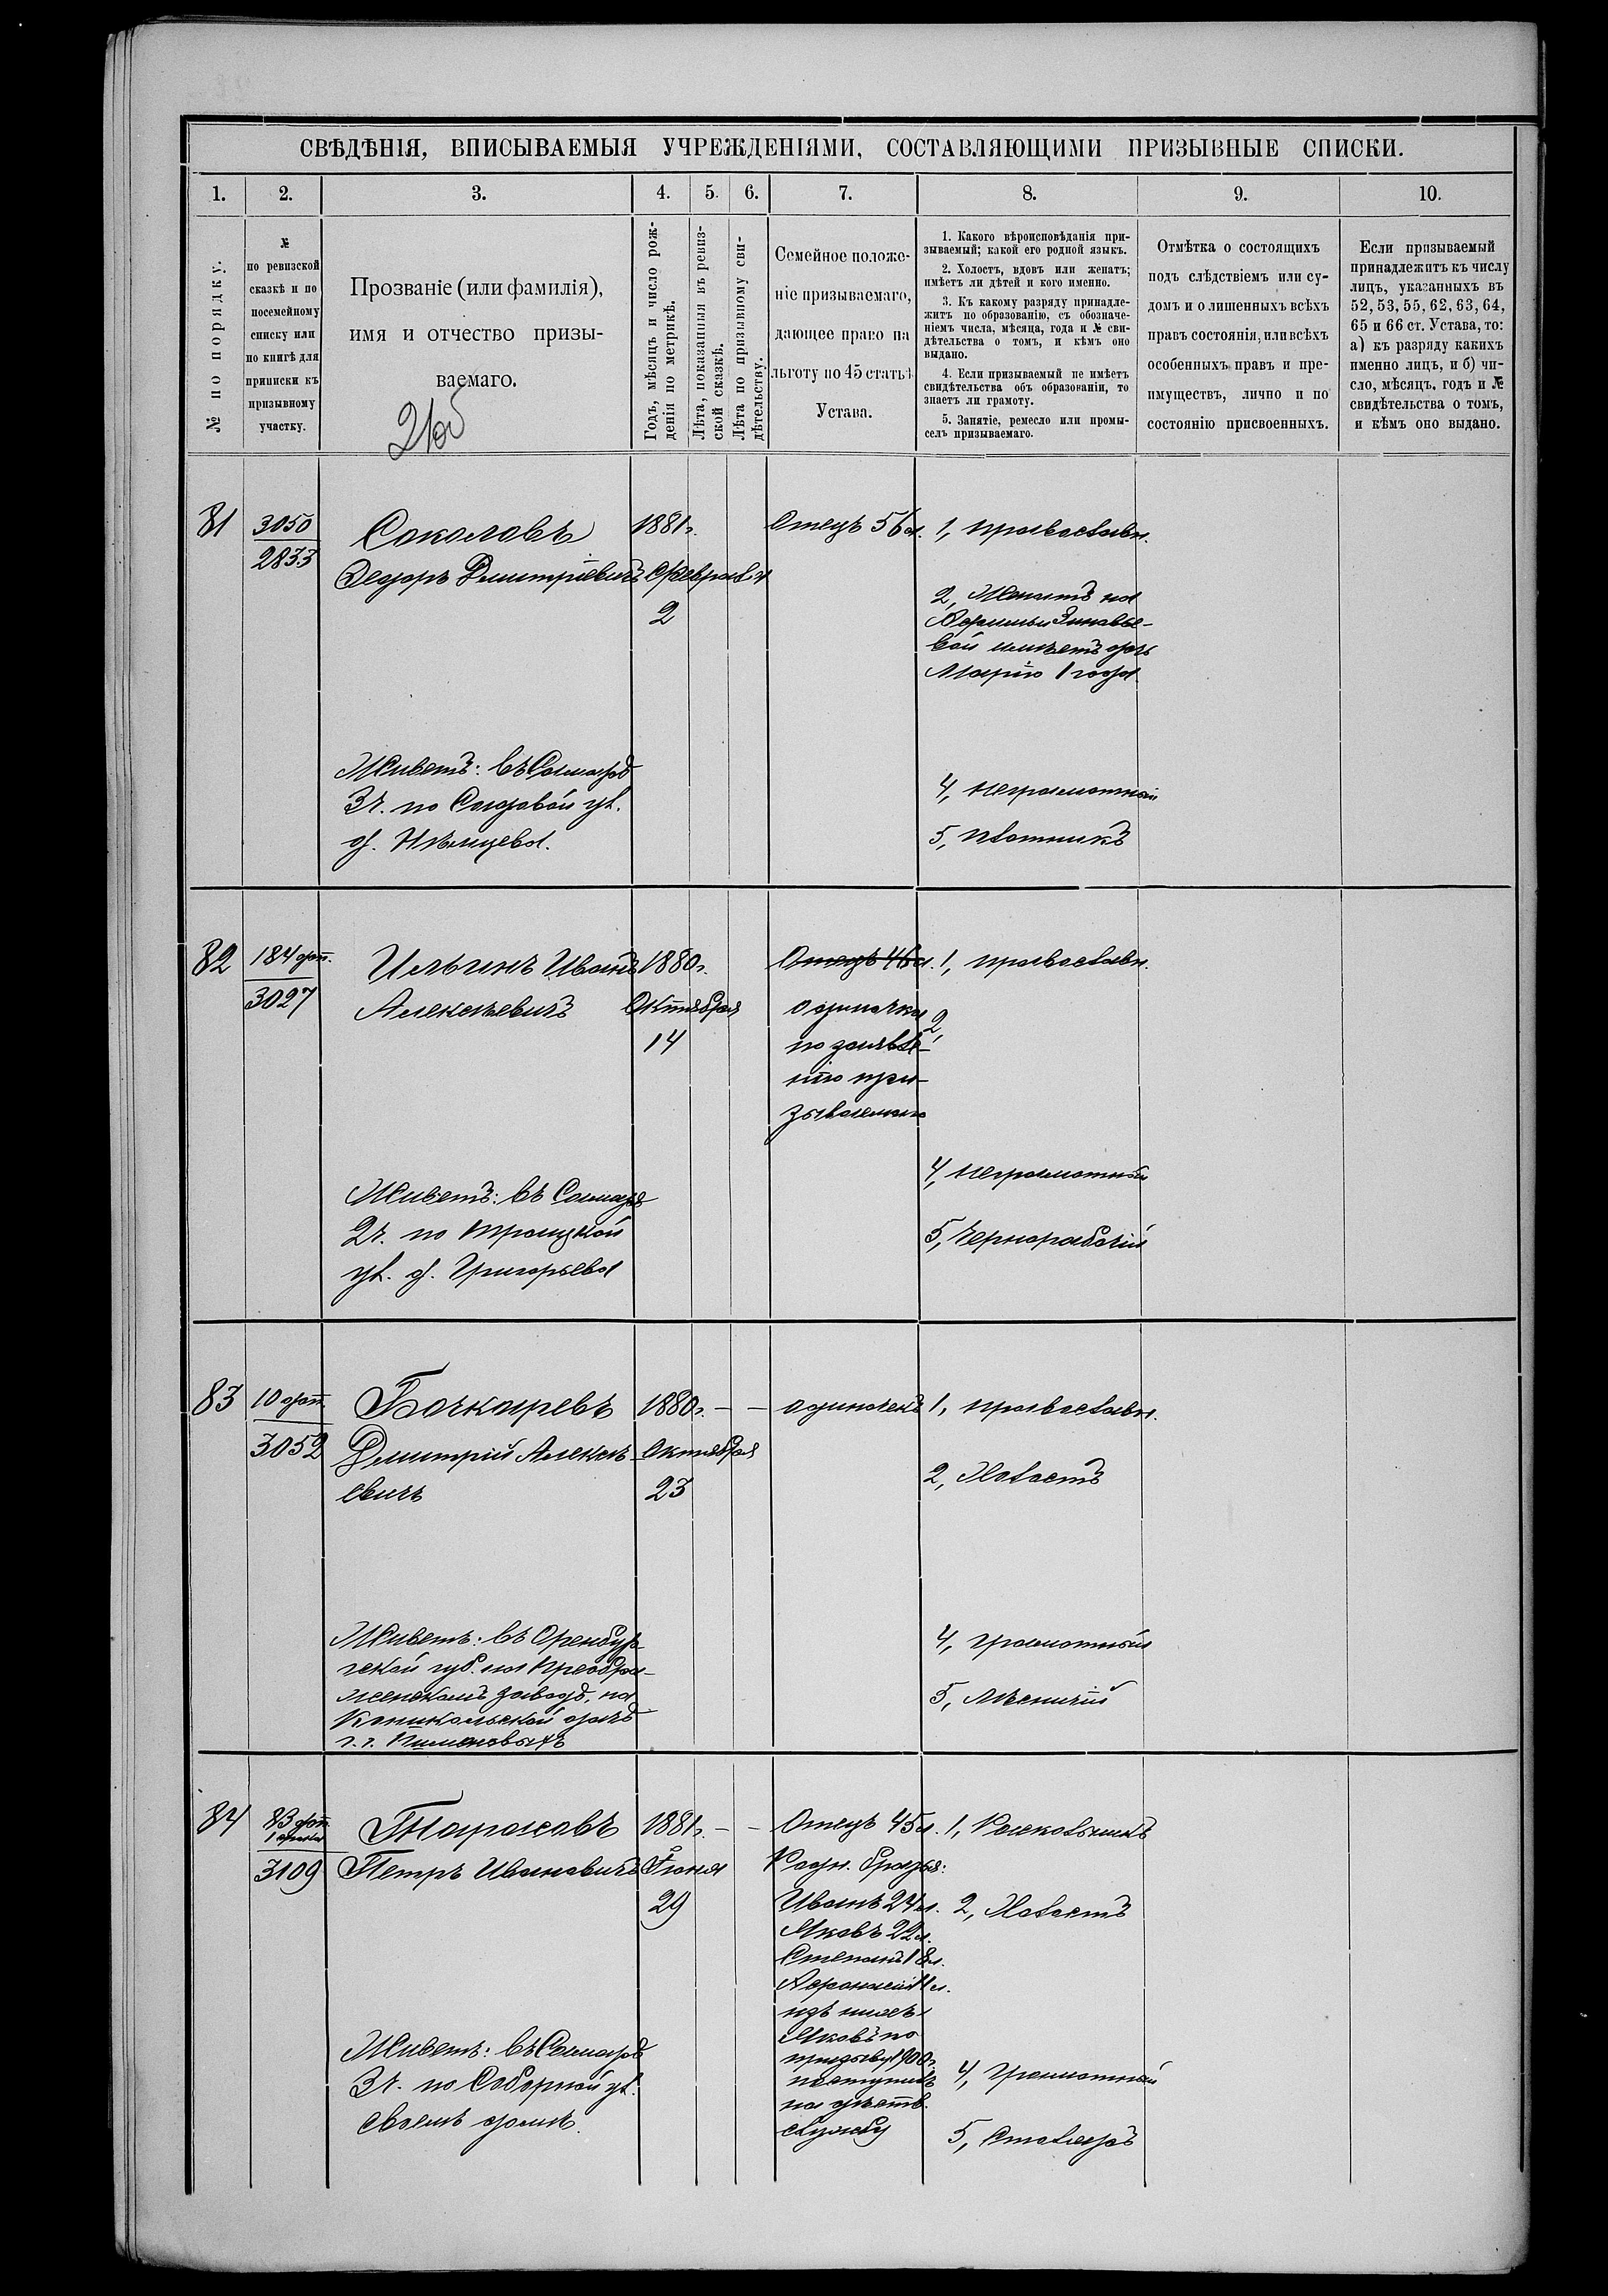 СВѢДѢНІЯ, ВПИСЫВАЕМЫЯ УЧРЕЖДЕНІЯМИ, СОСТАВЛЯЮЩИМИ ПРИЗЫВНЫЕ СПИСКИ.
1. 2. 3. 4. 5. 6. 7. 8. 9. 10.
№ по порядку.
№
по ревизской
сказкѣ и по
посемейному
списку или
по книгѣ для
приписки къ
призывному
участку.
Прозваніе (или фамилія),
имя и отчество призы-
ваемаго.
Годъ, мѣсяцъ и число рож-
денія по метрикѣ.
Лѣта, показанныя въ ревиз-
ской сказкѣ.
Лѣта по призывному сви-
дѣтельству.
Семейное положе-
ніе призываемаго,
дающее право на
льготу по 45 статьѣ
Устава.
1. Какого вѣроисповѣданія при-
зываемый; какой его родной языкъ.
2. Холостъ, вдовъ или женатъ;
имѣетъ ли дѣтей и кого именно.
3. Къ какому разряду принадле-
житъ по образованію, съ обозначе-
ніемъ числа, мѣсяца, года и № сви-
дѣтельства о томъ, и кѣмъ оно
выдано.
4. Если призываемый не имѣетъ
свидѣтельства объ образованіи, то
знаетъ ли грамоту.
5. Занятіе, ремесло или промы-
селъ призываемаго.
Отмѣтка о состоящихъ
подъ слѣдствіемъ или су-
домъ и о лишенныхъ всѣхъ
правъ состоянія, или всѣхъ
особенныхъ правъ и пре-
имуществъ, лично и по
состоянію присвоенныхъ.
Если призываемый
принадлежитъ къ числу
лицъ, указанныхъ въ
52, 53, 55, 62, 63, 64,
65 и 66 ст. Устава, то:
а) къ разряду какихъ
именно лицъ, и б) чи-
сло, мѣсяцъ, годъ и №
свидѣтельства о томъ,
и кѣмъ оно выдано.
81
3050
2833
Соколовъ
Ѳедоръ Дмитріевичъ
1881 г.
Февраля
2
Отецъ 56 л.
1, православн.
2, Женатъ на
Зиновье-
вой имѣетъ дочь
Марію 1 года
Живетъ: въ Самарѣ
3 ч. по Садовой ул.
д. Нѣмцева.
4, неграмотный
5, плотникъ
82
184 доп.
3027
Ильинъ Иванъ
Алексѣевичъ
1880 г.
Октября
14
Отецъ 46 л.
одиночка
по заявле-
нію при-
зываемаго
1, православн.
2,
Живетъ: въ Самарѣ
2 ч. по Троицкой
ул. д. Григорьева
4, неграмотный
5, чернорабочій
83
10 доп.
3052
Бочкаревъ
Дмитрій Алексѣ-
евичъ
1880 г. – –
Октября
23
одиночекъ
1, православн.
2, Холостъ
Живетъ: въ Оренбур-
гской губ. на Преобра-
женскомъ заводѣ, на
Каникольской дачѣ
г.г.
4, грамотный
5, Лѣсничій
84
83 доп.
3109
Тарасовъ
Петръ Ивановичъ
1881 г. – –
Іюня
29
Отецъ 45 л.
Родн. братья:
Иванъ 24 л.
Яковъ 22 л.
Степанъ 18 л.
изъ нихъ
Яковъ по
призыву 1900 г.
поступилъ
на дѣйств.
службу
1, Раскольникъ
2, Холостъ
Живетъ: въ Самарѣ
3 ч. по Соборной ул.
своемъ домѣ.
4, Грамотный
5, Столяръ